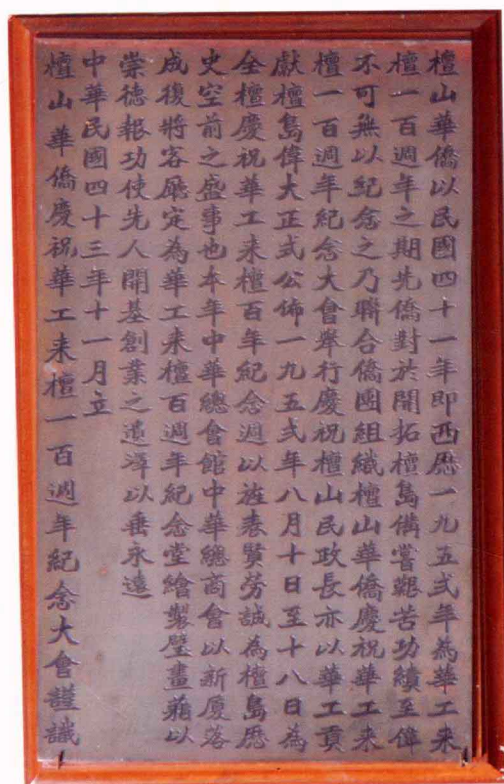 檀山華僑以民國四十一年即西厯一九五弍年為華工来
檀一百週年之期先僑對於開拓檀島備嘗艱苦功績至偉
不可無以紀念之乃聯合僑團組織檀山華僑慶祝華工来
檀一百週年紀念大會舉行慶祝檀山民政長亦以華工貢
獻檀島偉大正式公佈一九五弍年八月十日至十八日為
全檀慶祝華工来檀百年紀念週以旌表賢勞誠為檀島厯
史空前之盛事也本年中華總會館中華總商會以新廈落
成後將客廳定為華工来檀百週年紀念堂繪製壁畫藉以
崇德報功使先人開基創業之遺澤以垂永遠
中華民國四十三年十一月立
檀山華僑慶祝華工来檀一百週年紀念大會謹識